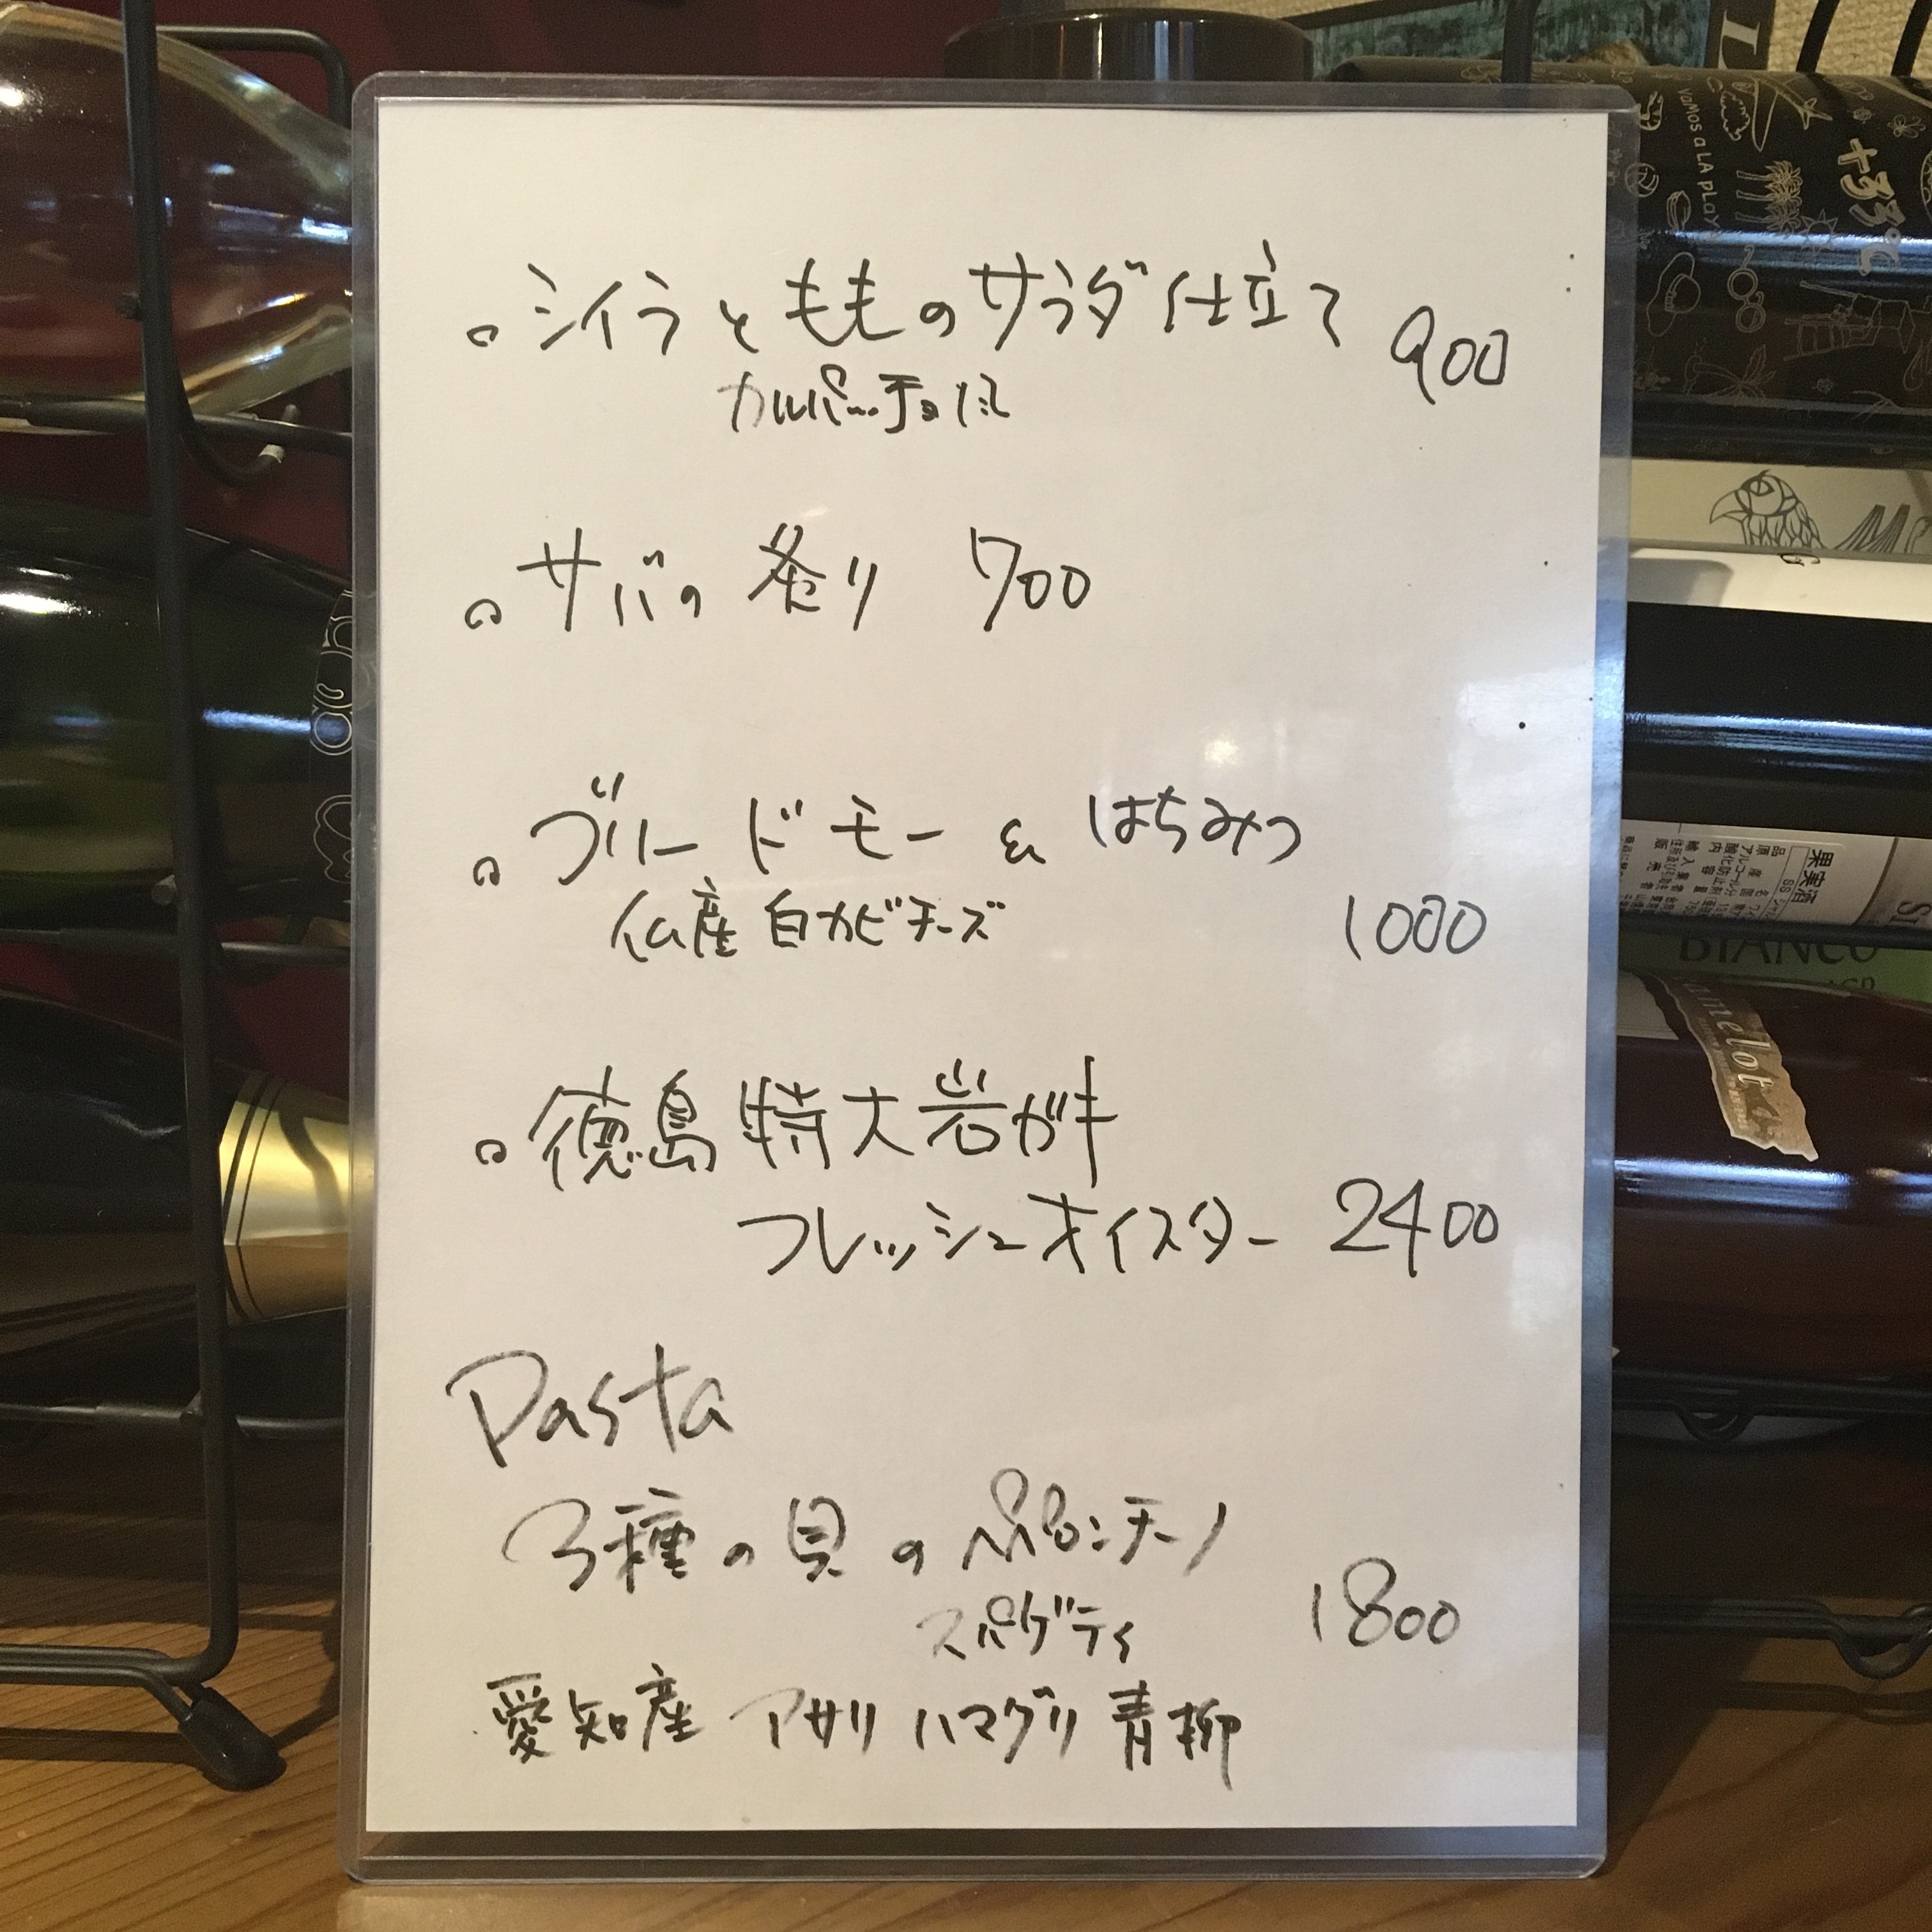 シイラとももの サラダ仕立て 900
カルパッチョ風
サバの 炙り 700
ブリー ド モー & はちみつ
仏産 白カビチーズ 1000
徳島 特大岩ガキ
フレッシュオイスター 2400
Pasta
3種の貝のペペロンチーノ
スパゲティ 1800
愛知産 アサリ ハマグリ 青柳
+33℃
VAMOS a LA PLAY
果実酒
BIANCO
amelot